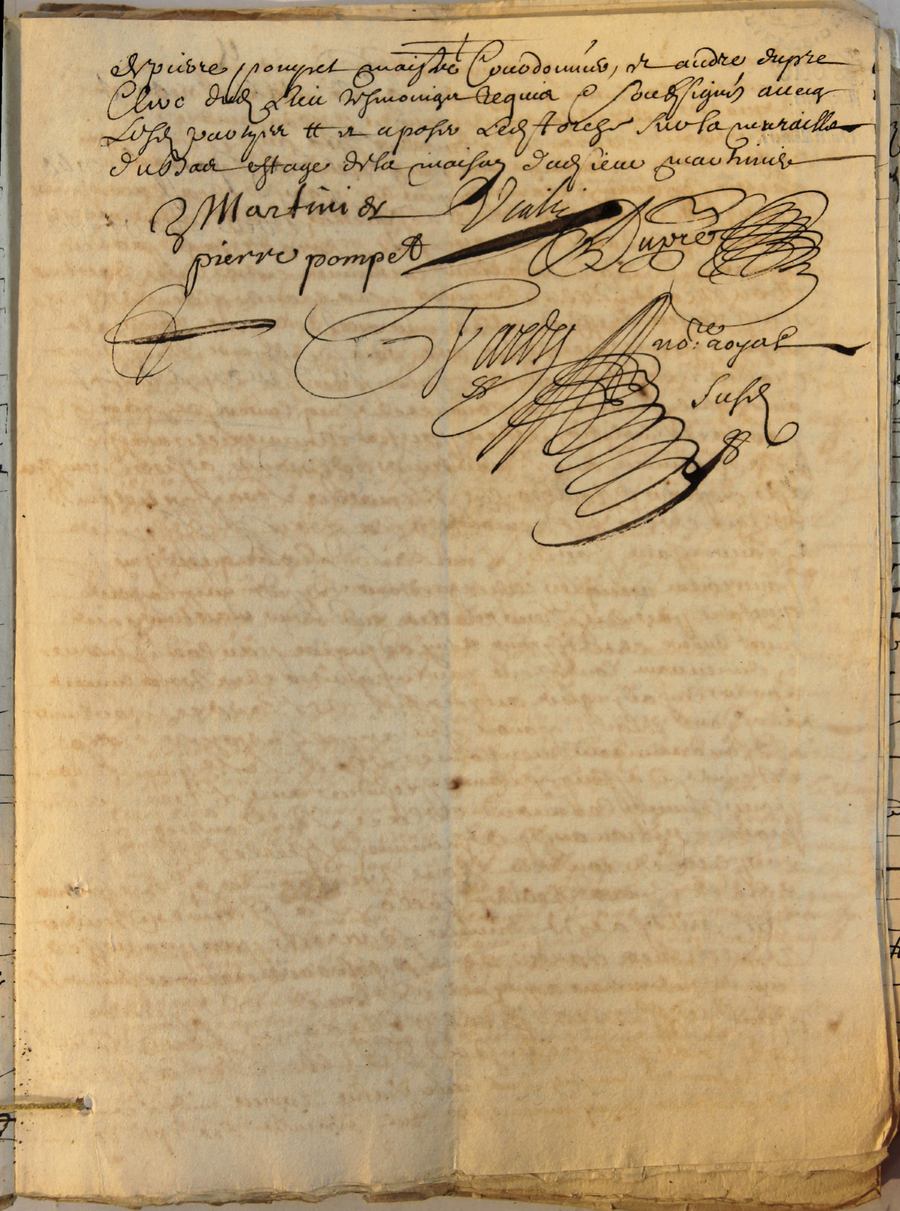 de pierre pompet maistre Courdonnier, et andre dupre
Clerc dud Lieu tesmoings requis soubsignés aveq
Lesd parties et aposé Led torche sur la muraille
du bas estage de la maison dud sieur martinier
Martinier Viali
pierre pompet Dupré
Tardy no.re royal
susd